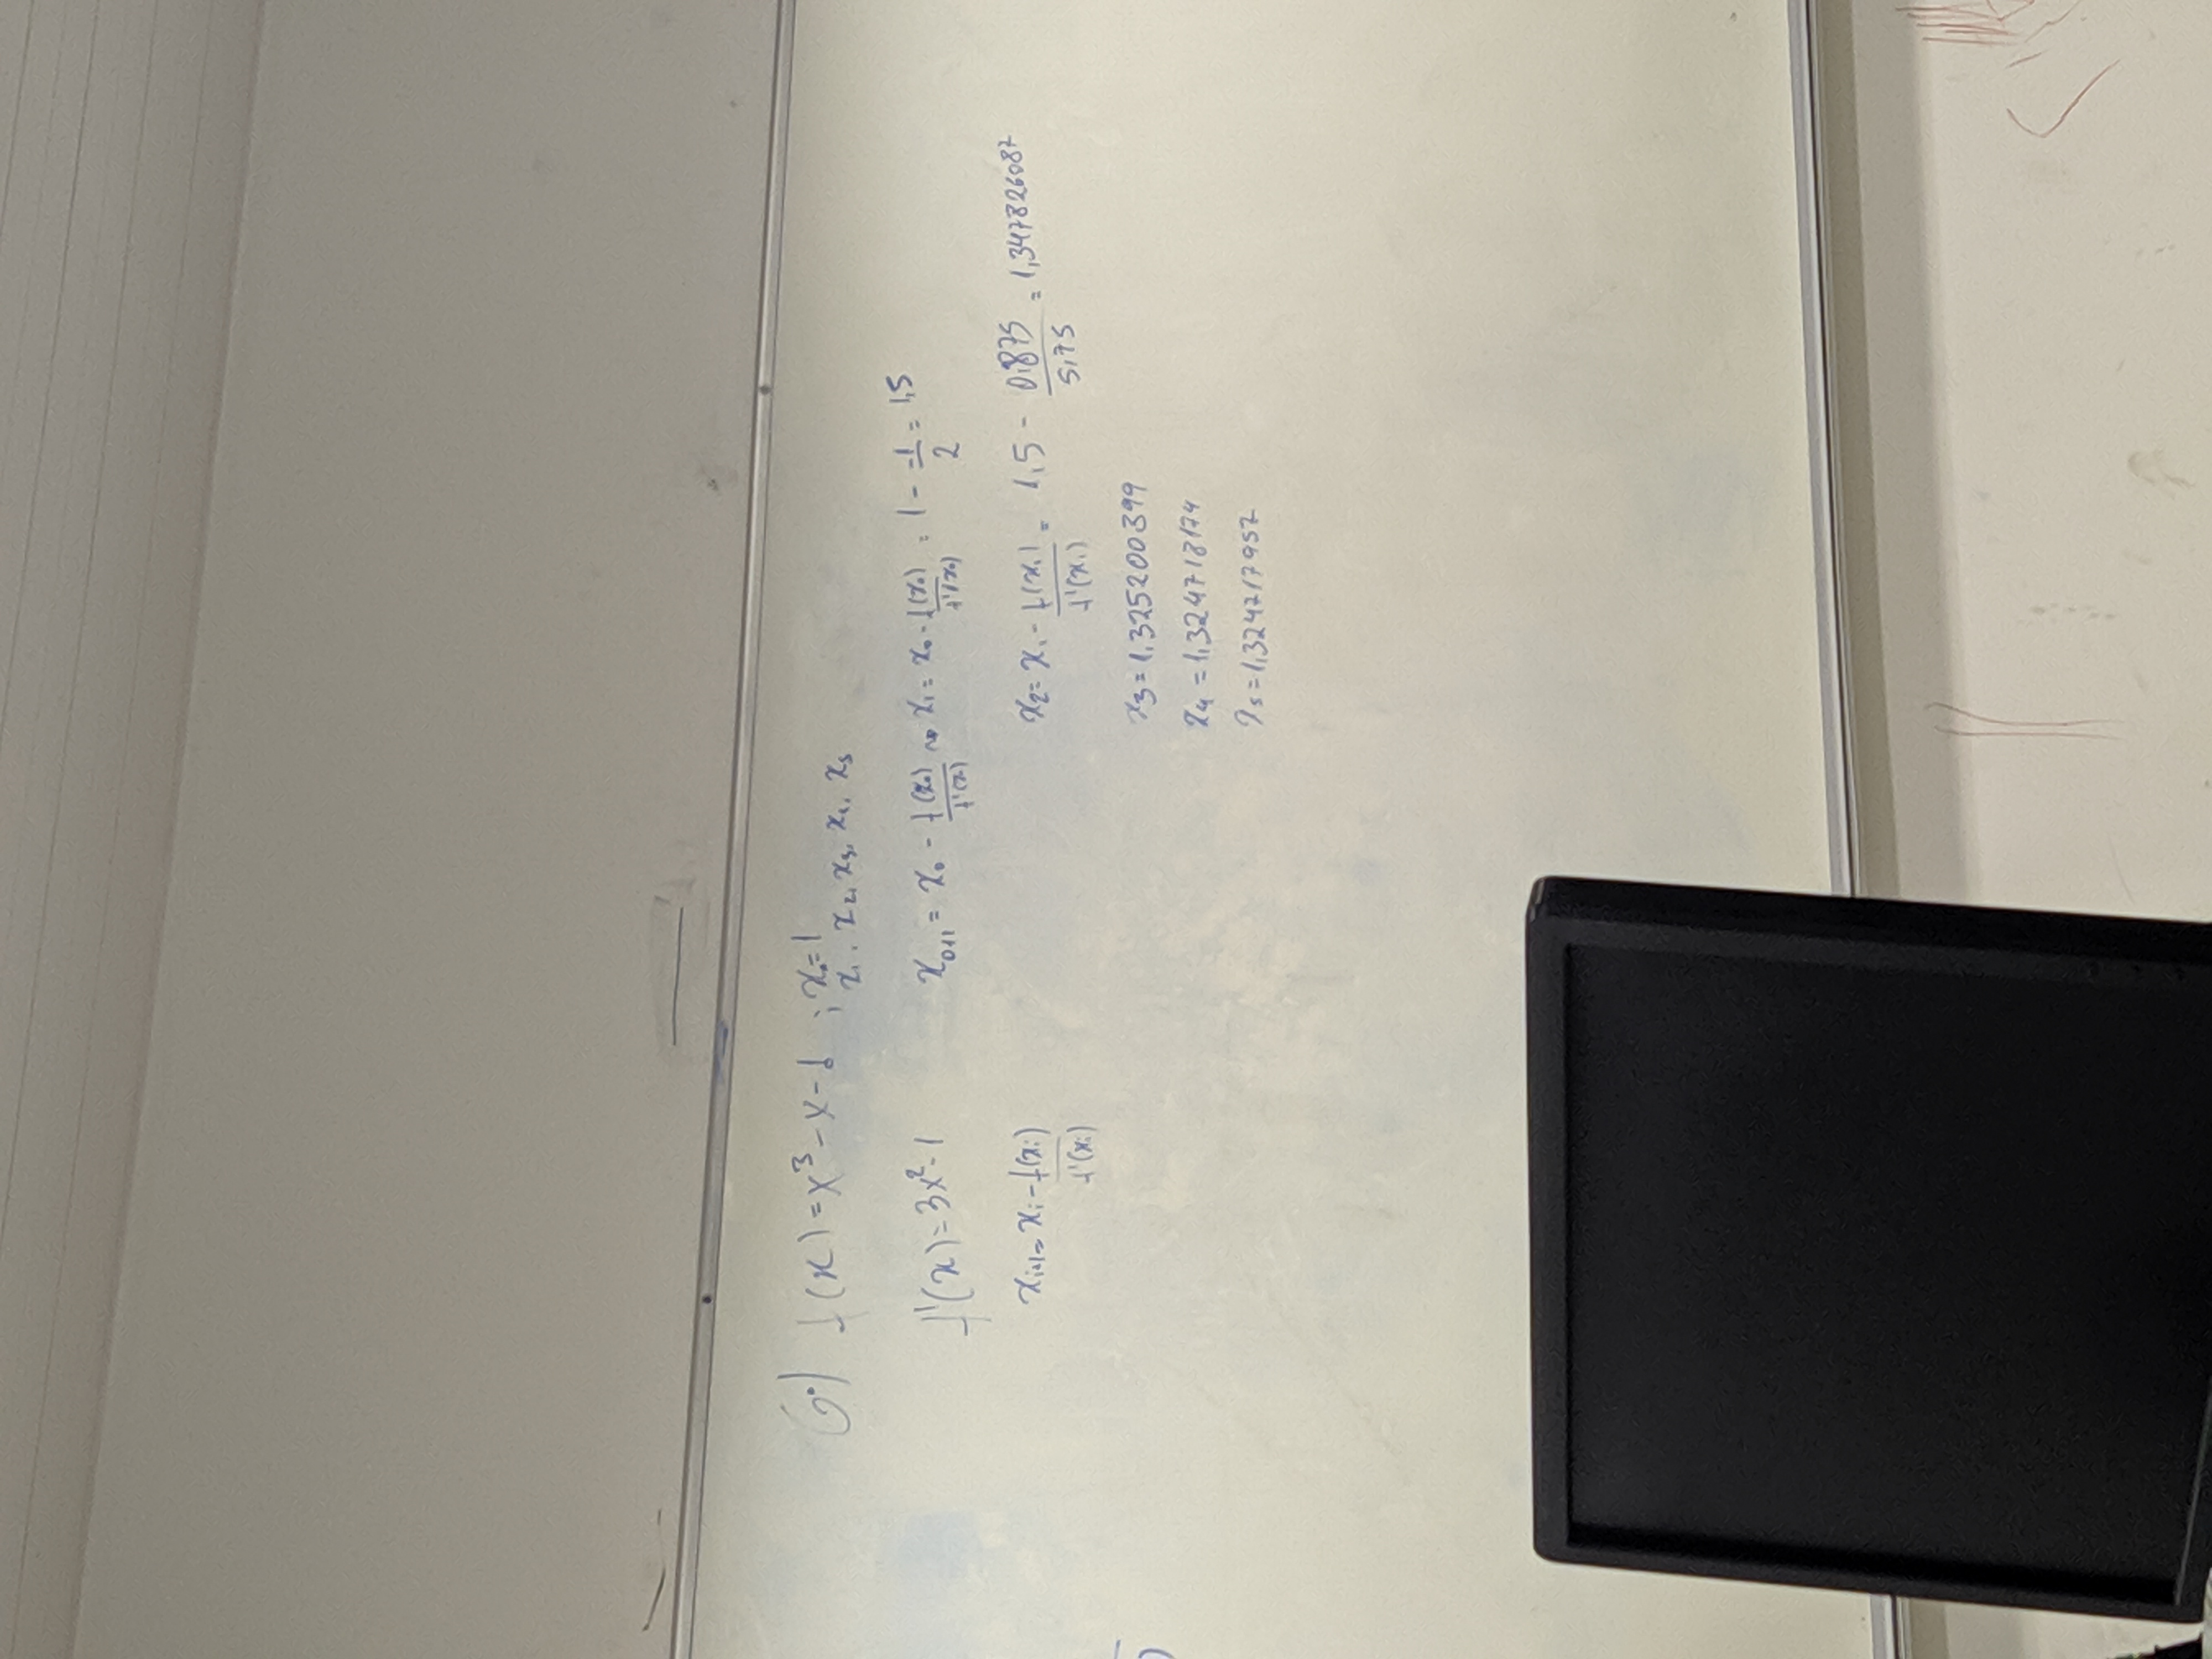 6.) f(x) = x³ - x - 1 ; x₀ = 1
x₁, x₂, x₃, x₄, x₅
f'(x) = 3x² - 1
x₀₊₁ = x₀ - f(x₀)/f'(x₀) ⇝ x₁ = x₀ - f(x₀)/f'(x₀) = 1 - -1/2 = 1,5
xᵢ₊₁ = xᵢ - f(xᵢ)/f'(xᵢ)
x₂ = x₁ - f(x₁)/f'(x₁) = 1,5 - 0,875/5,75 = 1,347826087
x₃ = 1,325200399
x₄ = 1,324718174
x₅ = 1,324717957